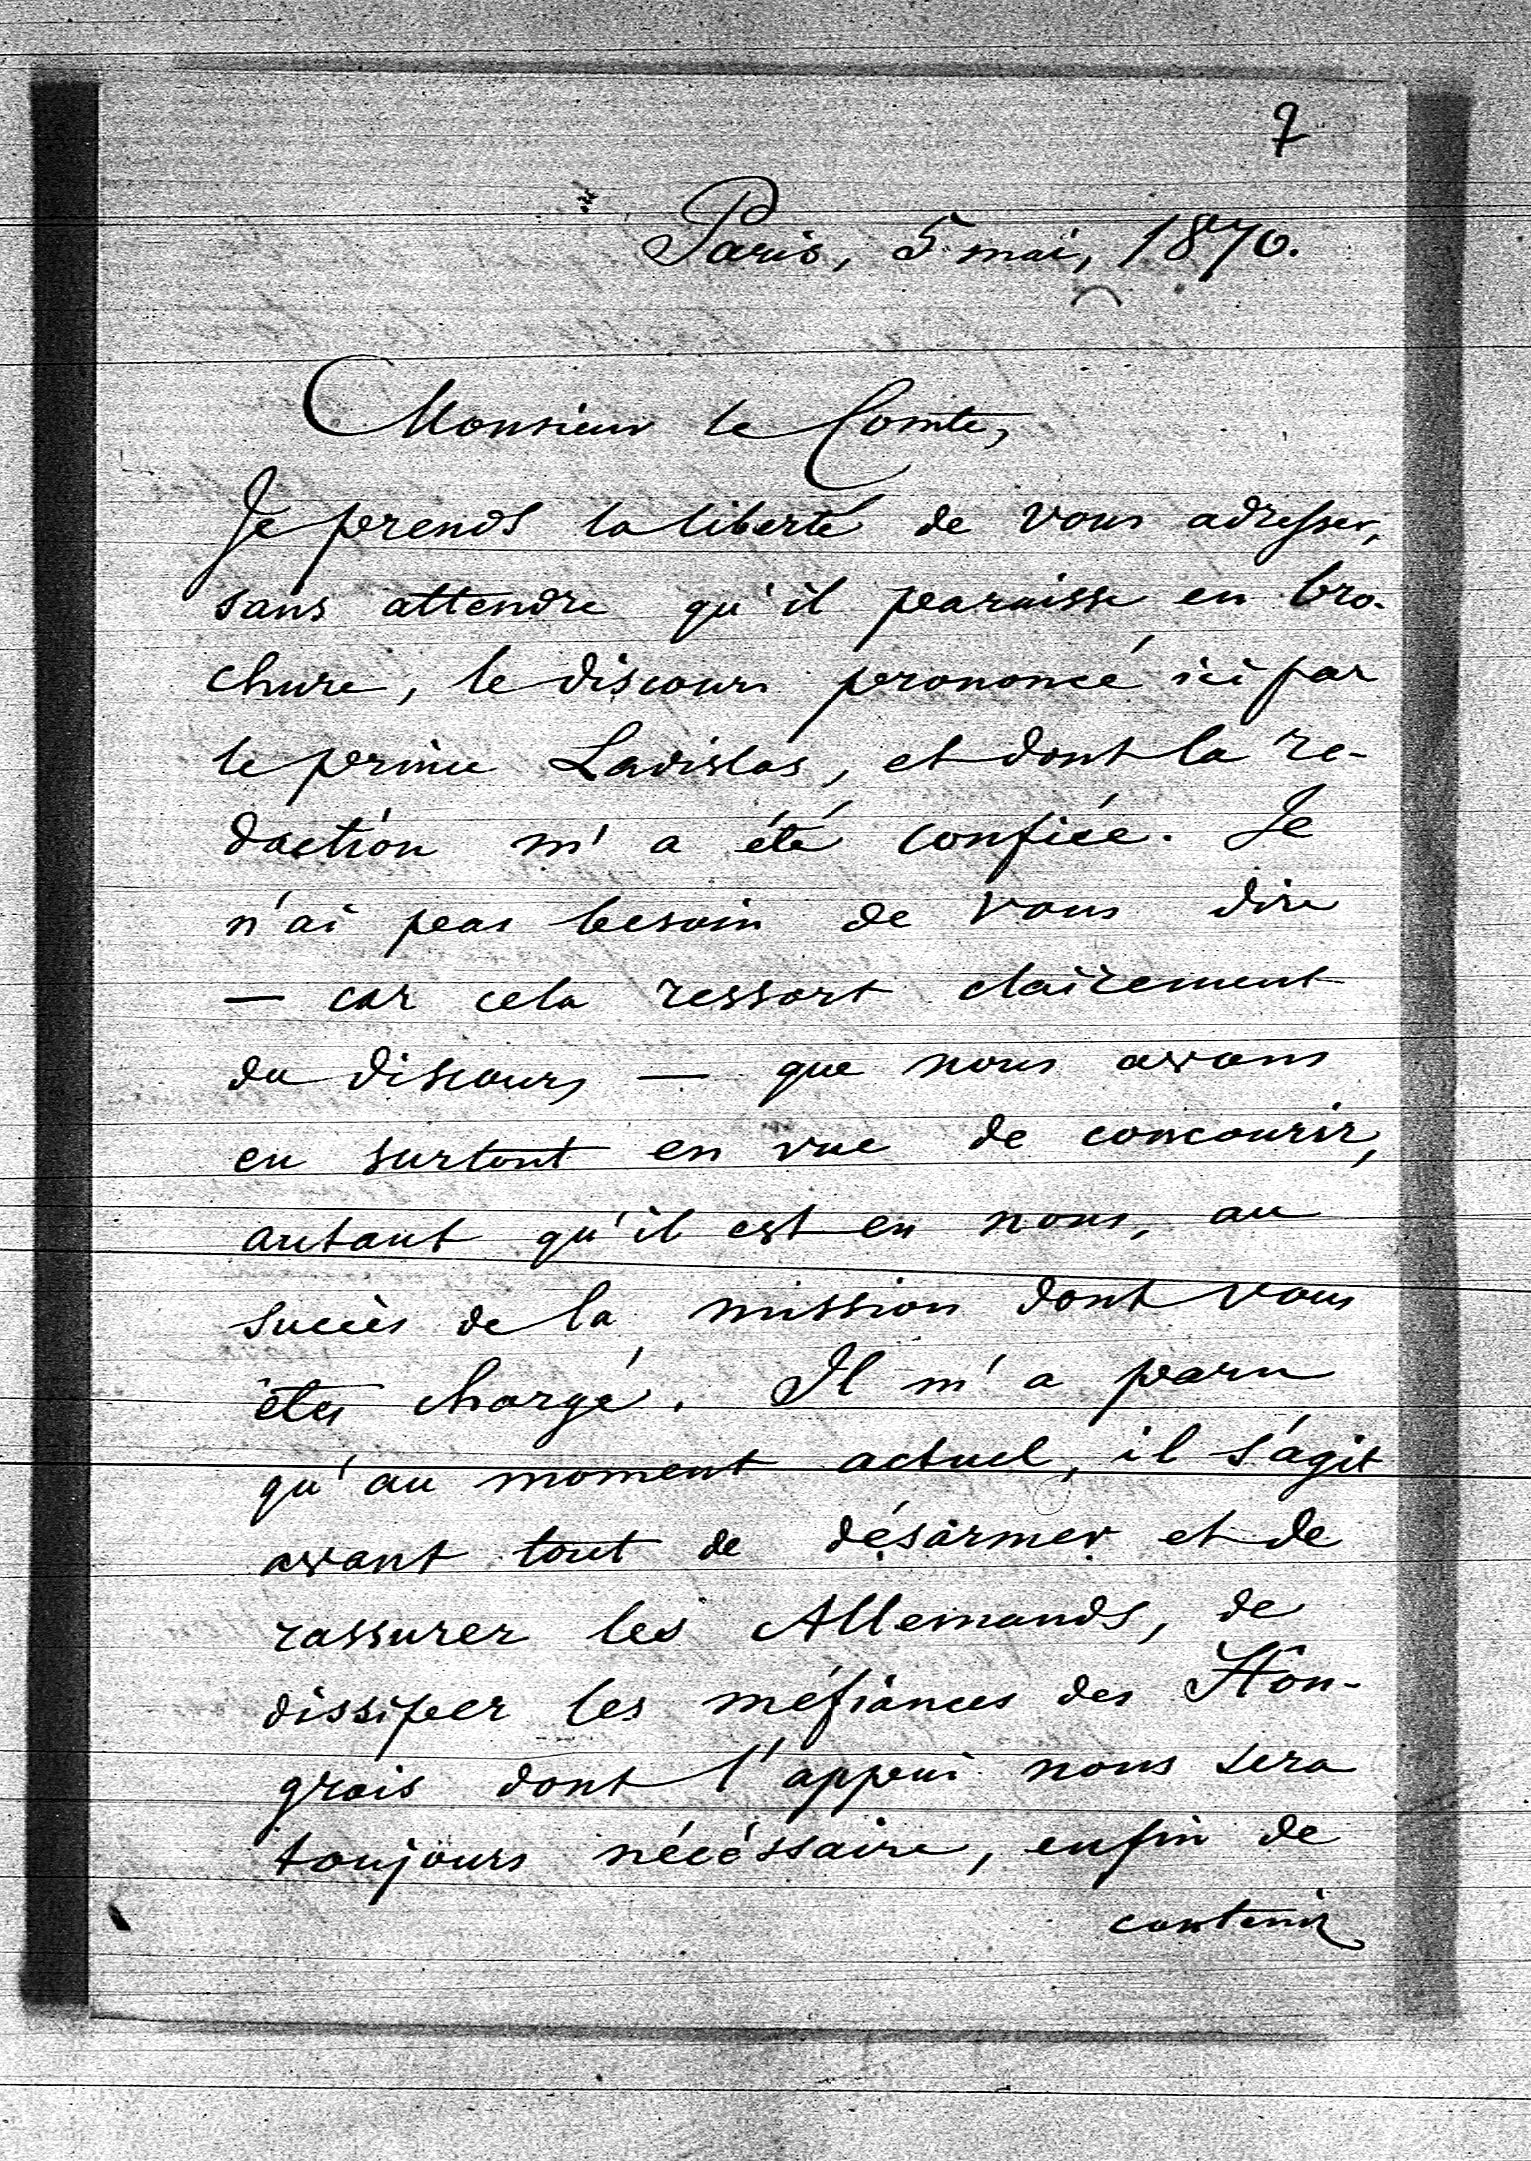 7
Paris, 5 mai, 1870.
Monsieur le Comte,
Je prends la liberté de vous adresser,
sans attendre qu'il paraisse en bro-
chure, le discours prononcé ici par
le prince Ladislas, et dont la re-
daction m'a été confiée. Je
n'ai pas besoin de vous dire
— car cela ressort clairement
du discours — que nous avons
eu surtout en vue de concourir,
autant qu'il est en nous, au
succès de la mission dont vous
êtes chargé. Il m'a paru
qu'au moment actuel, il s'agit
avant tout de désarmer et de
rassurer les Allemands, de
dissiper les méfiances des Hon-
grois dont l'appui nous sera
toujours nécéssaire, enfin de
contenir